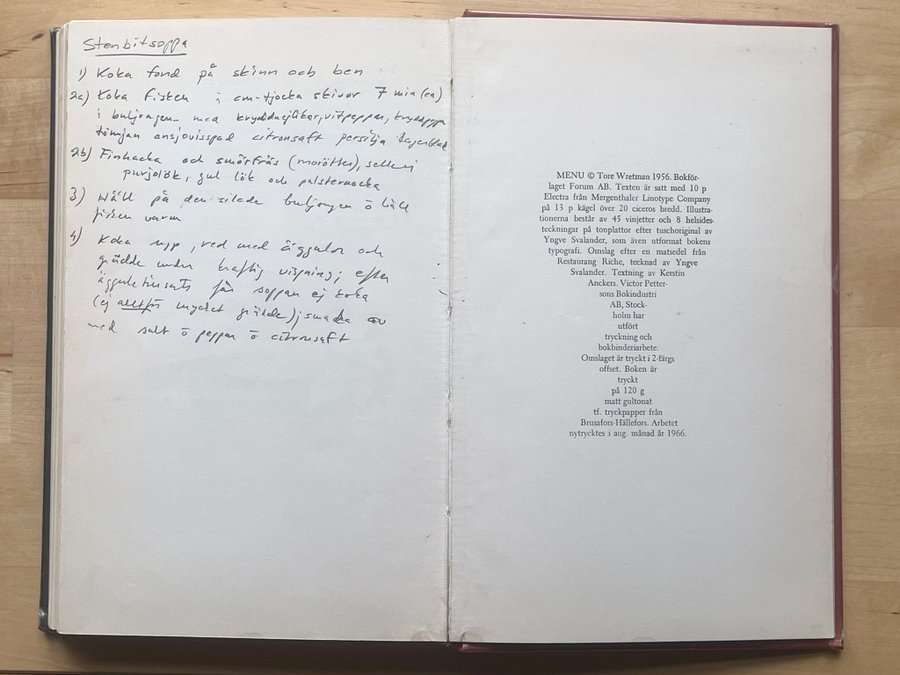 Stenbitsoppa
1) Koka fond på skinn och ben
2a) Koka fisken i cm-tjocka skivor 7 min (ca)
i buljongen med kryddnejlikor, vitpeppar, kryddpeppar
timjan ansjovisspad citronsaft persilja lagerblad
2b) Finhacka och smörfräs (morötter), selleri
purjolök, gul lök och palsternacka
3) Häll på den silade buljongen o håll
fisken varm
4) Koka upp, red med äggulor och
grädde under kraftig vispning; efter
ägguletillsats får soppan ej koka
(ej alltför mycket grädde); smaka av
med salt o peppar o citronsaft
MENU © Tore Wretman 1956. Bokför-
laget Forum AB. Texten är satt med 10 p
Electra från Mergenthaler Linotype Company
på 13 p kägel över 20 ciceros bredd. Illustra-
tionerna består av 45 vinjetter och 8 helsides-
teckningar på tonplattor efter tuschoriginal av
Yngve Svalander, som även utformat bokens
typografi. Omslag efter en matsedel från
Restaurang Riche, tecknad av Yngve
Svalander. Textning av Kerstin
Anckers. Victor Petter-
sons Bokindustri
AB, Stock-
holm har
utfört
tryckning och
bokbinderiarbete.
Omslaget är tryckt i 2-färgs
offset. Boken är
tryckt
på 120 g
matt gultonat
tf. tryckpapper från
Brusafors-Hällefors. Arbetet
nytrycktes i aug. månad år 1966.